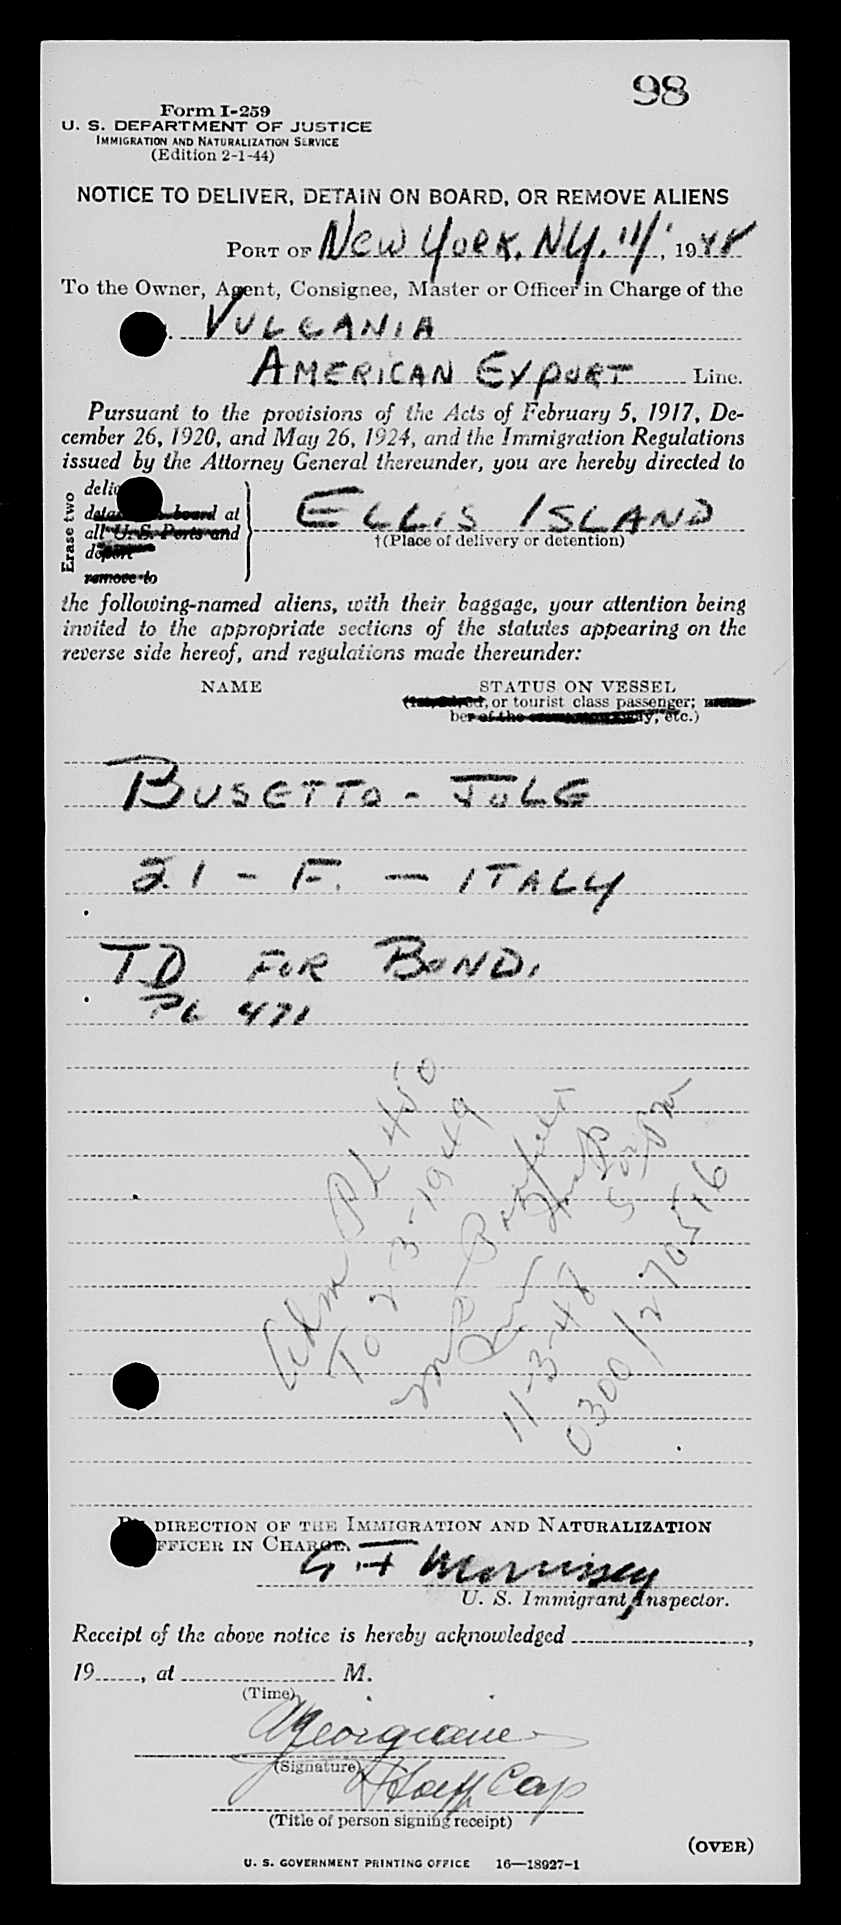 98
Form I-259
U. S. DEPARTMENT OF JUSTICE
IMMIGRATION AND NATURALIZATION SERVICE
(Edition 2-1-44)
NOTICE TO DELIVER, DETAIN ON BOARD, OR REMOVE ALIENS
PORT OF New York, NY. 11/1, 1948
To the Owner, Agent, Consignee, Master or Officer in Charge of the
VULCANIA
AMERICAN EXPORT Line.
Pursuant to the provisions of the Acts of February 5, 1917, De-
cember 26, 1920, and May 26, 1924, and the Immigration Regulations
issued by the Attorney General thereunder, you are hereby directed to
Erase two
board at
all U. S. Ports and
deport
remove to
ELLIS ISLAND
†(Place of delivery or detention)
the following-named aliens, with their baggage, your attention being
invited to the appropriate sections of the statutes appearing on the
reverse side hereof, and regulations made thereunder:
NAME STATUS ON VESSEL
or tourist class passenger;
ber of the etc.)
BUSETTO - JOLE
21 - F. - ITALY
TD FOR BOND.
PL 471
Adm PL 450
To 2-3-1949
11-3-48
0300/270516
DIRECTION OF THE IMMIGRATION AND NATURALIZATION
OFFICER IN CHARGE.
G. F. Morrissey
U. S. Immigrant Inspector.
Receipt of the above notice is hereby acknowledged ,
19 , at M.
(Time)
(Signature)
(Title of person signing receipt)
(OVER)
U. S. GOVERNMENT PRINTING OFFICE 16—18927-1